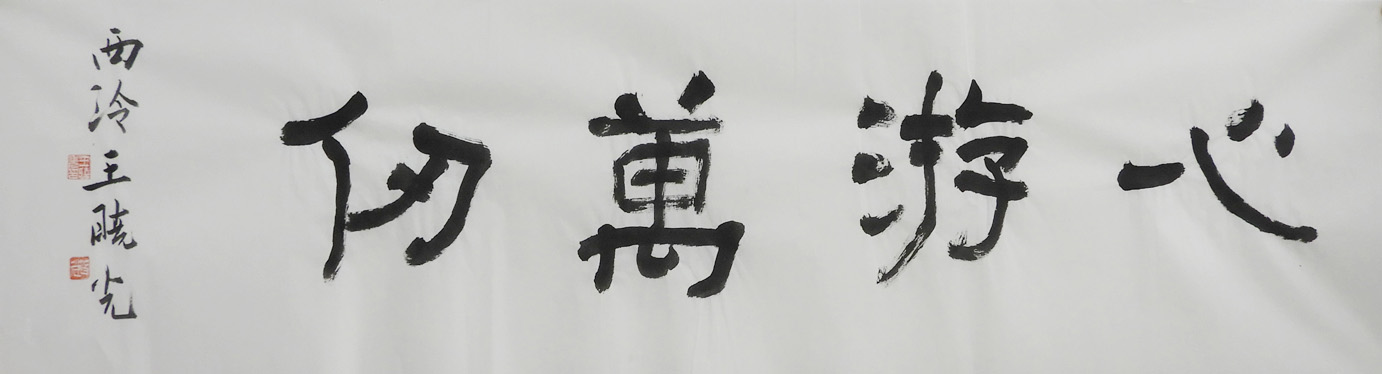 心游萬仞
西泠王曉光